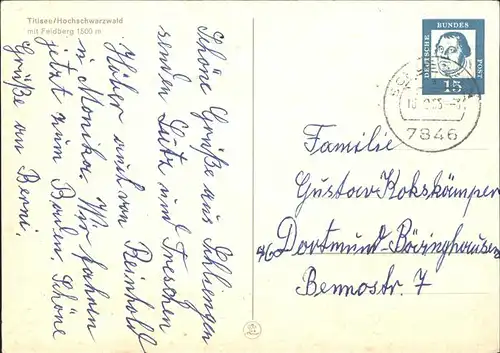 Titisee/Hochschwarzwald
mit Feldberg 1500 m
Schöne Grüße aus Schlingen
senden Lütz und Treschen
Häber und von Reinhold
u Monika. Wir fahren
jetzt zum Baden. Schöne
Grüße an Berni.
DEUTSCHE
BUNDES
POST
15
7846
Familie
Gustav Kokskämper
46 Dortmund-Bövinghausen
Bennostr. 7